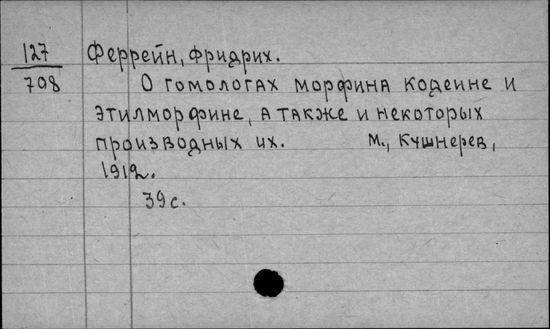 127 Феррейн, Фридрих.
708 О гомологах морфина кодеине и
этилморфине, а также и некоторых
производных их. М., Кушнерев,
1912.
39 с.